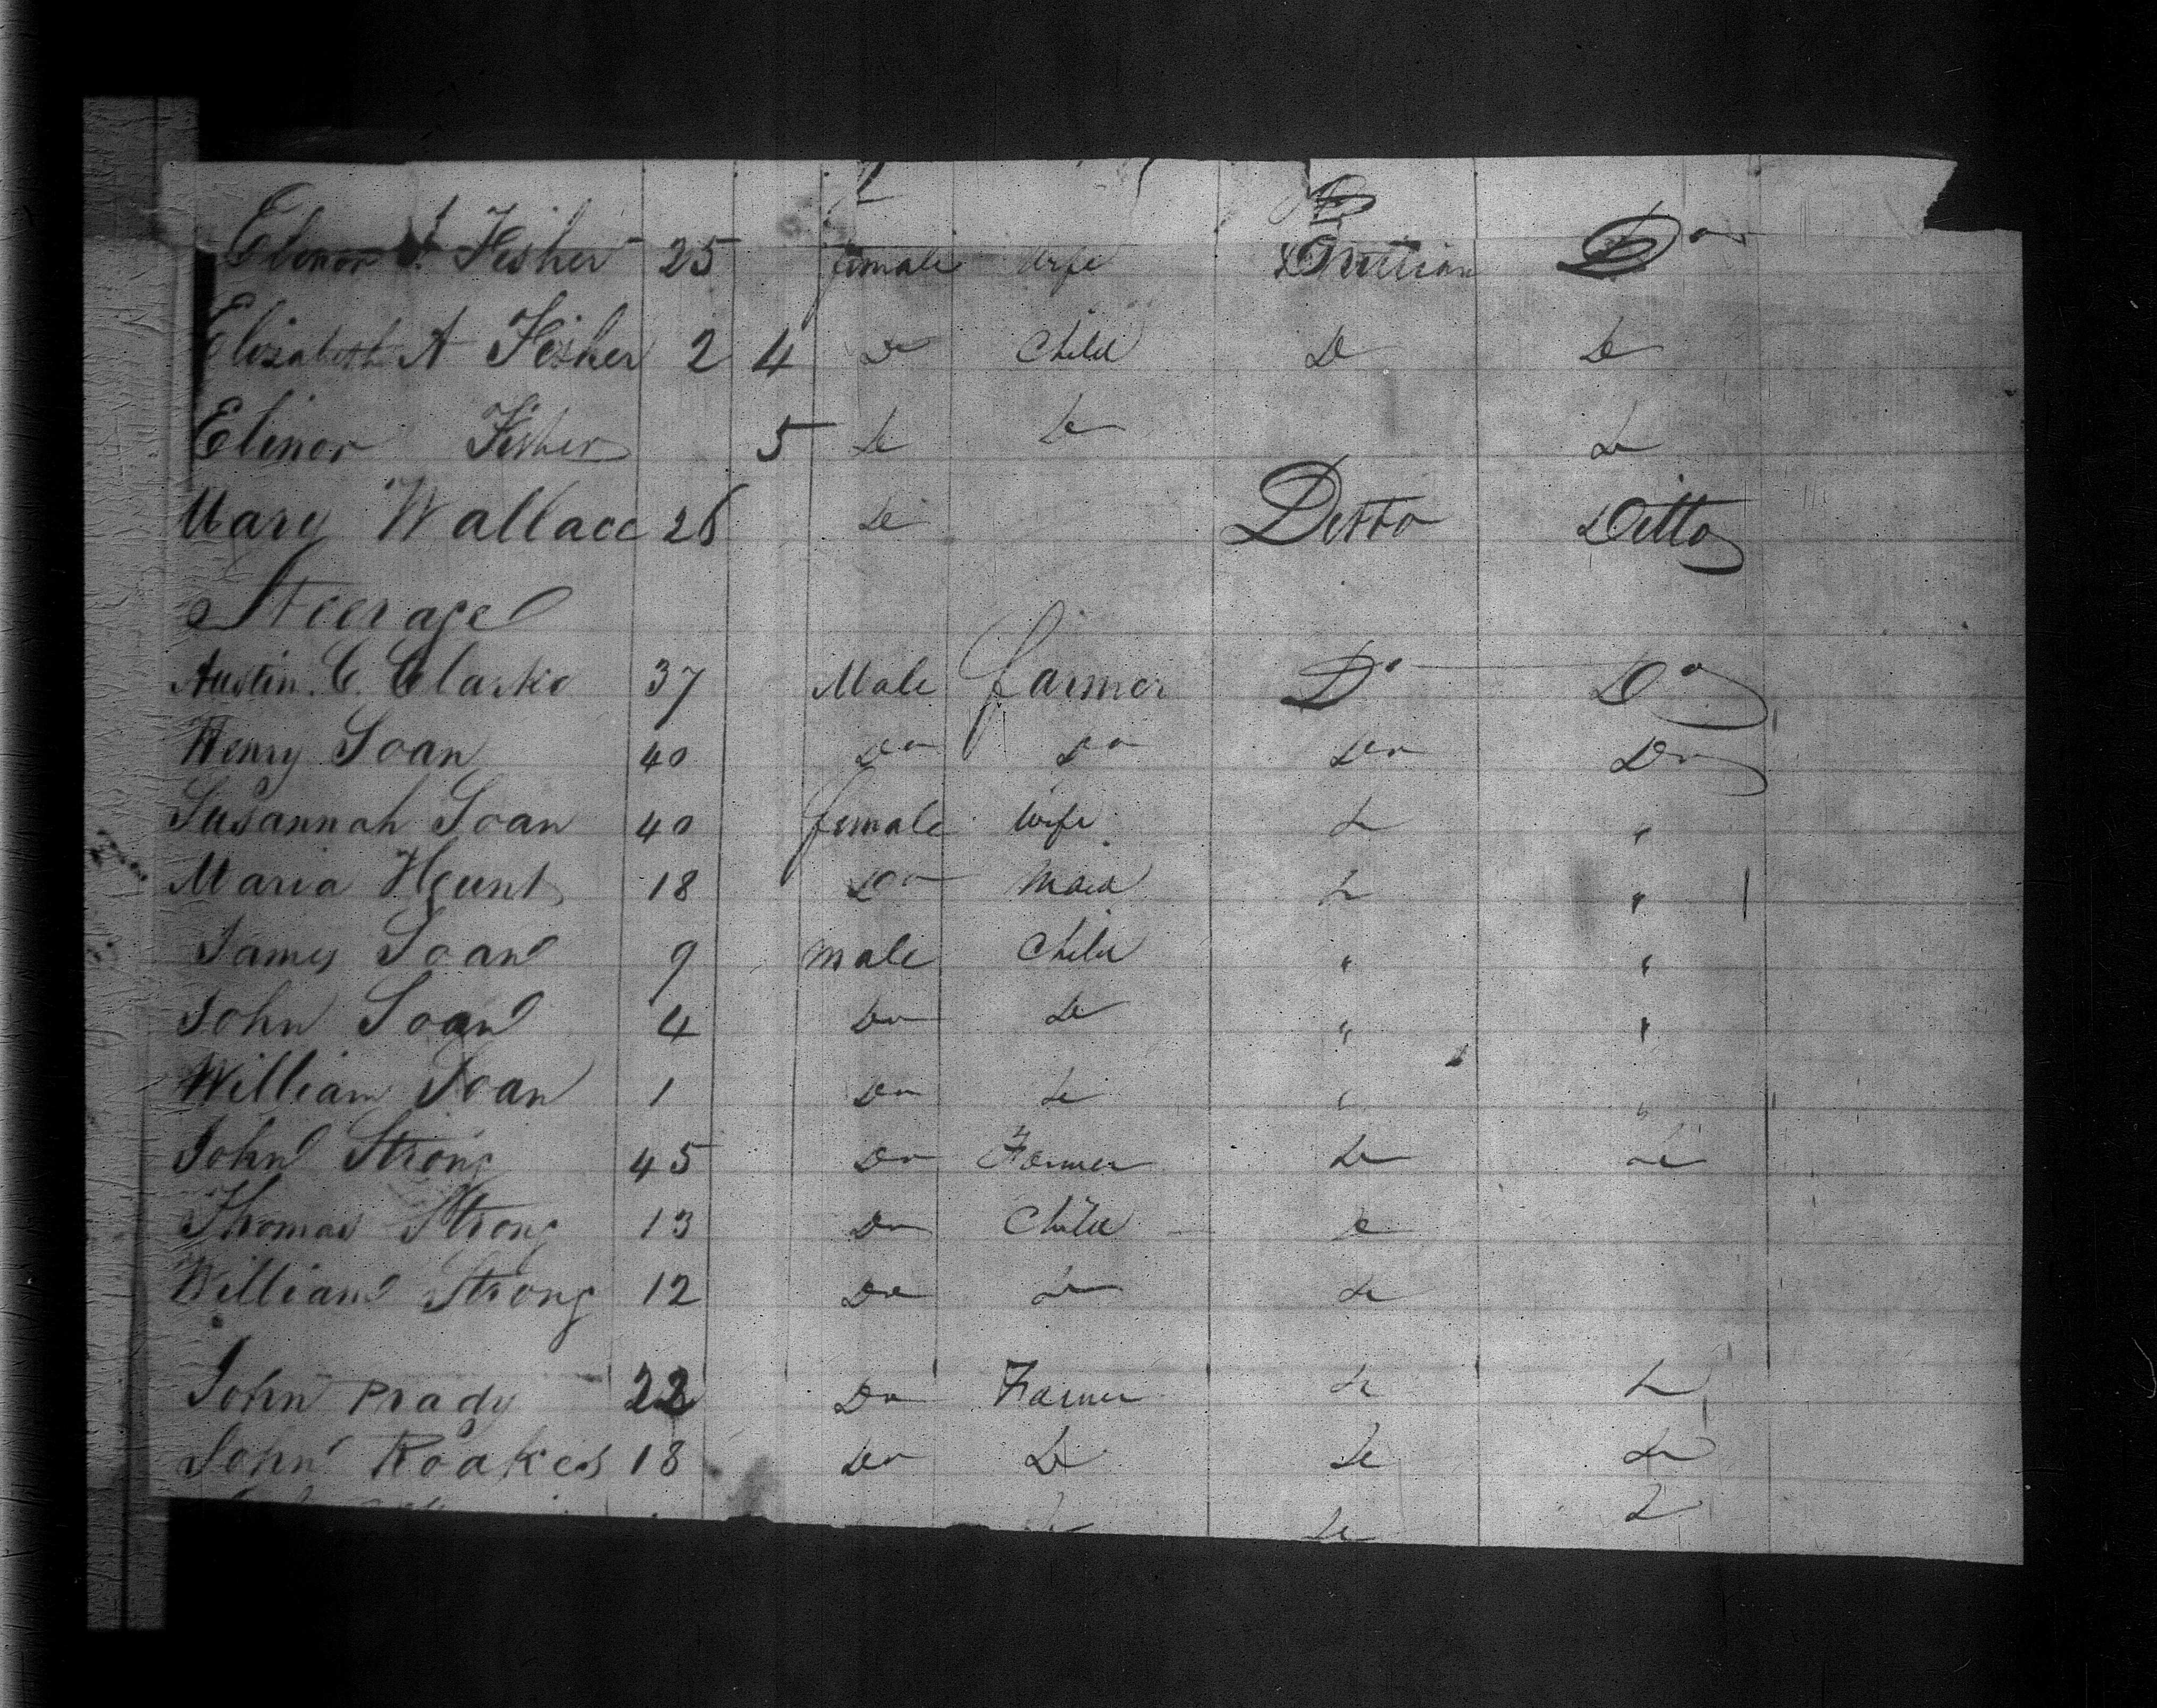 Elinor J. Fisher 25 female wife Brittian Do
Elizabeth A Fisher 2 4 Do Child Do Do
Elinor Fisher 5 Do Do Do
Mary Wallace 26 Do Ditto Ditto
Steerage
Austin. C. Clarke 37 Male farmer Do Do
Henry Soan 40 Do Do Do Do
Susannah Soan 40 female wife Do "
Maria Hunt 18 Do Maid Do "
James Soan 9 Male Child " "
John Soan 4 Do Do " "
William Soan 1 Do Do " "
John Strong 45 Do Farmer Do Do
Thomas Strong 13 Do Child Do
William Strong 12 Do Do Do
John Prady 22 Do Farmer Do Do
John Roakes 18 Do Do Do Do
Do Do Do